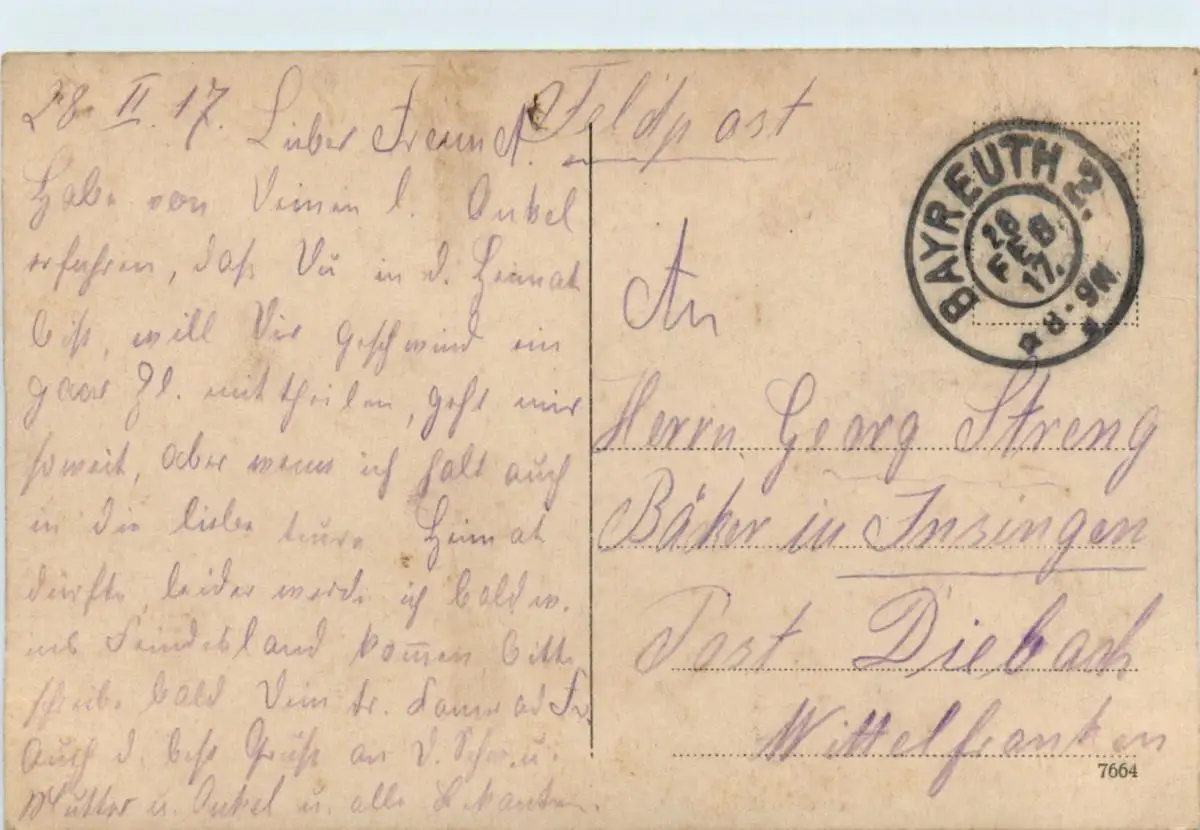 28. II. 17.
Lieber Freund!
Habe von Deinen l. Onkel
erfahren, daß Du in d. Heimat
bist, will Dir geschwind ein
paar Zl. mittheilen, geht mir
soweit, aber wenn ich halt auch
in die liebe teure Heimat
dürfte, leider werde ich bald w.
ins Feindesland kommen bitte
schreibe bald Dein tr. Kamerad Fr.
Auch d. beste Grüße an D. Schw. u.
Mutter u. Onkel u. alle Bekannten.
Feldpost
BAYREUTH 2.
28
FEB.
17.
8-9N
An
Herrn Georg Streng
Bäker in Insingen
Post Diebach
Mittelfranken
7664